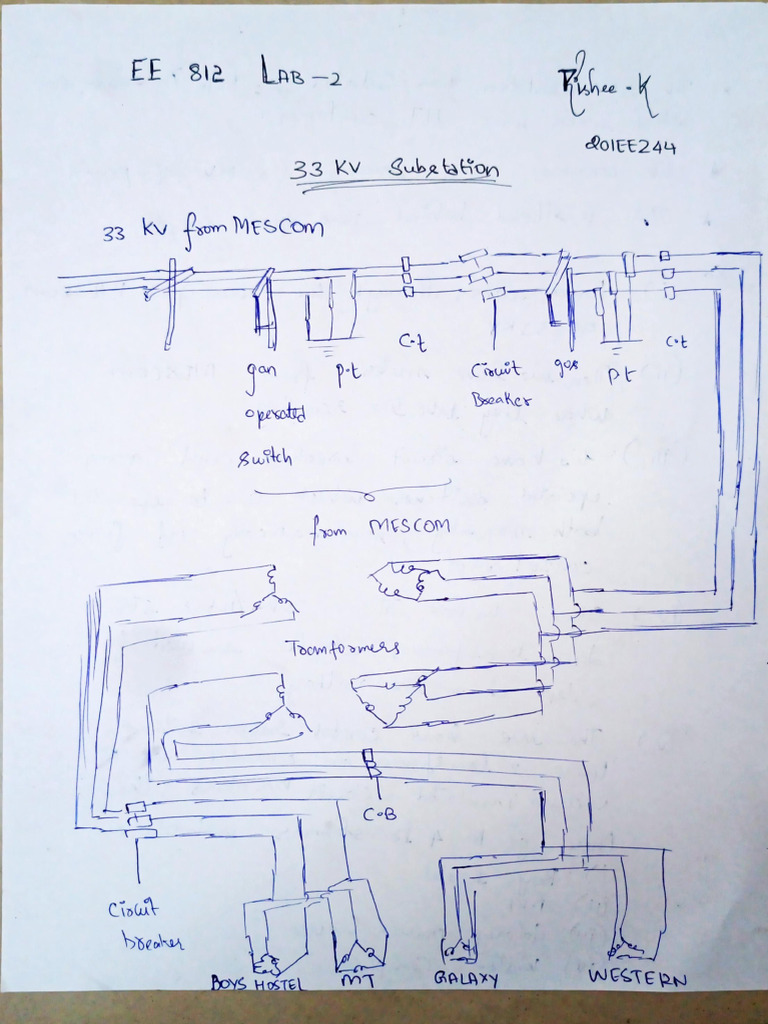 EE.812 LAB-2
Rishee.K
201EE244
33 KV Substation
33 KV from MESCOM
gan operated switch
p.t
C.t
Circuit Breaker
gos
Pt
C.t
from MESCOM
Transformers
C.B
Circuit breaker
BOYS HOSTEL
MT
GALAXY
WESTERN